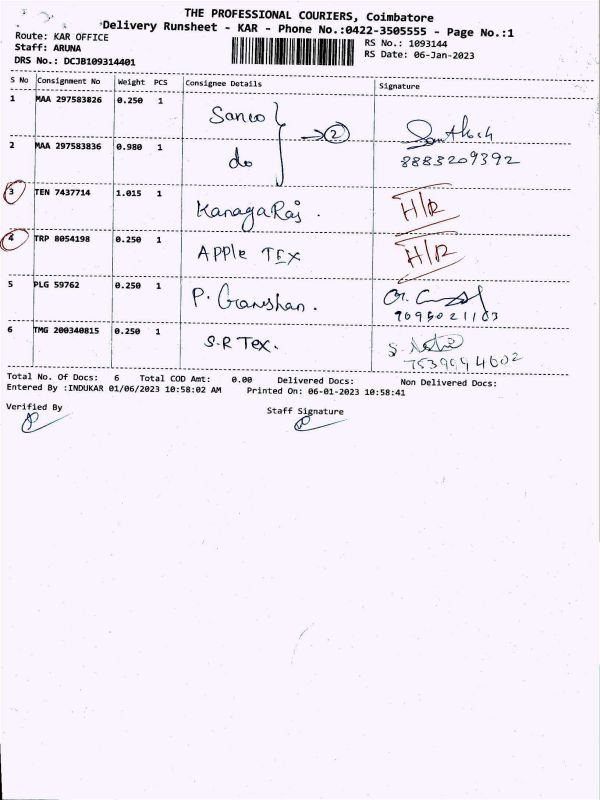 THE PROFESSIONAL COURIERS, Coimbatore
Delivery Runsheet - KAR - Phone No.:0422-3505555 - Page No.:1
Route: KAR OFFICE
RS No.: 1093144
Staff: ARUNA
RS Date: 06-Jan-2023
DRS No.: DCJB109314401
S No Consignment No Weight PCS Consignee Details Signature
1 MAA 297583826 0.250 1 Sanco 2 Santhosh
2 MAA 297583836 0.980 1 do 8883209392
3 TEN 7437714 1.015 1 KanagaRaj . H/R
4 TRP 8054198 0.250 1 APPle TEX H/R
5 PLG 59762 0.250 1 P. Ganeshan.
6 TMG 200340815 0.250 1 S.R Tex.
Total No. Of Docs: 6 Total COD Amt: 0.00 Delivered Docs: Non Delivered Docs:
Entered By :INDUKAR 01/06/2023 10:58:02 AM Printed On: 06-01-2023 10:58:41
Verified By Staff Signature